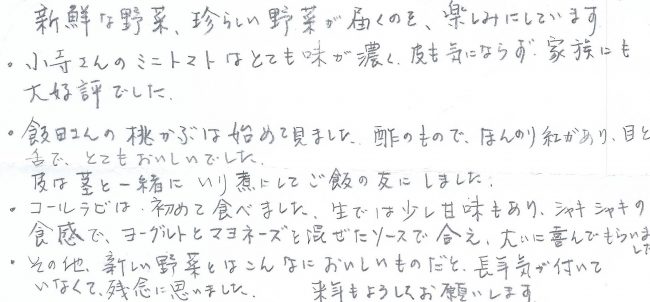 新鮮な野菜、珍らしい野菜が届くのを、楽しみにしています
・小寺さんのミニトマトはとても味が濃く、皮も気にならず、家族にも
大好評でした。
・飯田さんの桃かぶは始めて見ました。酢のもので、ほんのり紅があり、目と
舌で、とてもおいしいでした。
皮は茎と一緒にいり煮にしてご飯の友にしました。
・コールラビは、初めて食べました、生では少し甘味もあり、シャキシャキの
食感で、ヨーグルトとマヨネーズと混ぜたソースで合え、大いに喜んでもらいました
・その他、新しい野菜とはこんなにおいしいものだと、長年気が付いて
いなくて、残念に思いました。 来年もよろしくお願いします